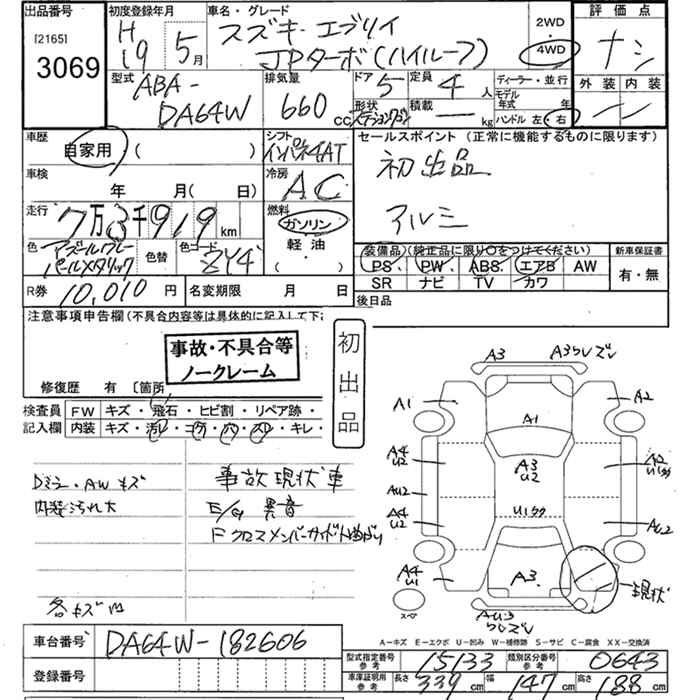 出品番号 初度登録年月 車名・グレード 2WD 評価点
[2165] H19 5月 スズキ エブリイ 4WD ナシ
3069 JPターボ(ハイルーフ)
型式 ABA- 排気量 ドア 5 定員 4人 ディーラー・並行 外装 内装
DA64W 660cc 形状 ステーションワゴン 積載 ー kg モデル年式 年 ー ー
ハンドル 左・右
車歴 シフト セールスポイント (正常に機能するものに限ります)
自家用 ( ) インパネ4AT 初出品
車検 冷房
年 月( 日) AC
走行 燃料 アルミ
7万3千919km ガソリン
色 色替 色コード 軽油 装備品(純正品に限り○をつけてください) 新車保証書
アズールグレーパールメタリック ZY4 ( ) PS. PW. ABS. エアB AW 有・無
SR ナビ TV カワ
R券 10,010円 名変期限 月 日 後日品
注意事項申告欄(不具合内容等は具体的に記入して下
事故・不具合等 初出品
ノークレーム
修復歴 有 〔箇所
検査員 FW キズ・飛石・ヒビ割・リペア跡・
記入欄 内装 キズ・汚レ・コゲ・穴・スレ・キレ・
Dミラー・AWキズ 事故現状車
内装汚れ大 E/G 異音
FクロスメンバーサイドBt曲がり
各キズ凹
A3 A3ワレズレ
A1 A2
A1
A4 U2 A3 U2 A2 U1クク
AU2 U1クク
A4 U2 AU2
A4 U1 A3. 現状
スペア AU3 ワレズレ
A-キズ E-エクボ U-凹み W-補修跡 S-サビ C-腐食 XX-交換済
車台番号 DA64W-182606 型式指定番号 参考 15133 類別区分番号 参考 0643
登録番号 車庫証明用 参考 長さ 339cm 幅 147cm 高さ 188cm